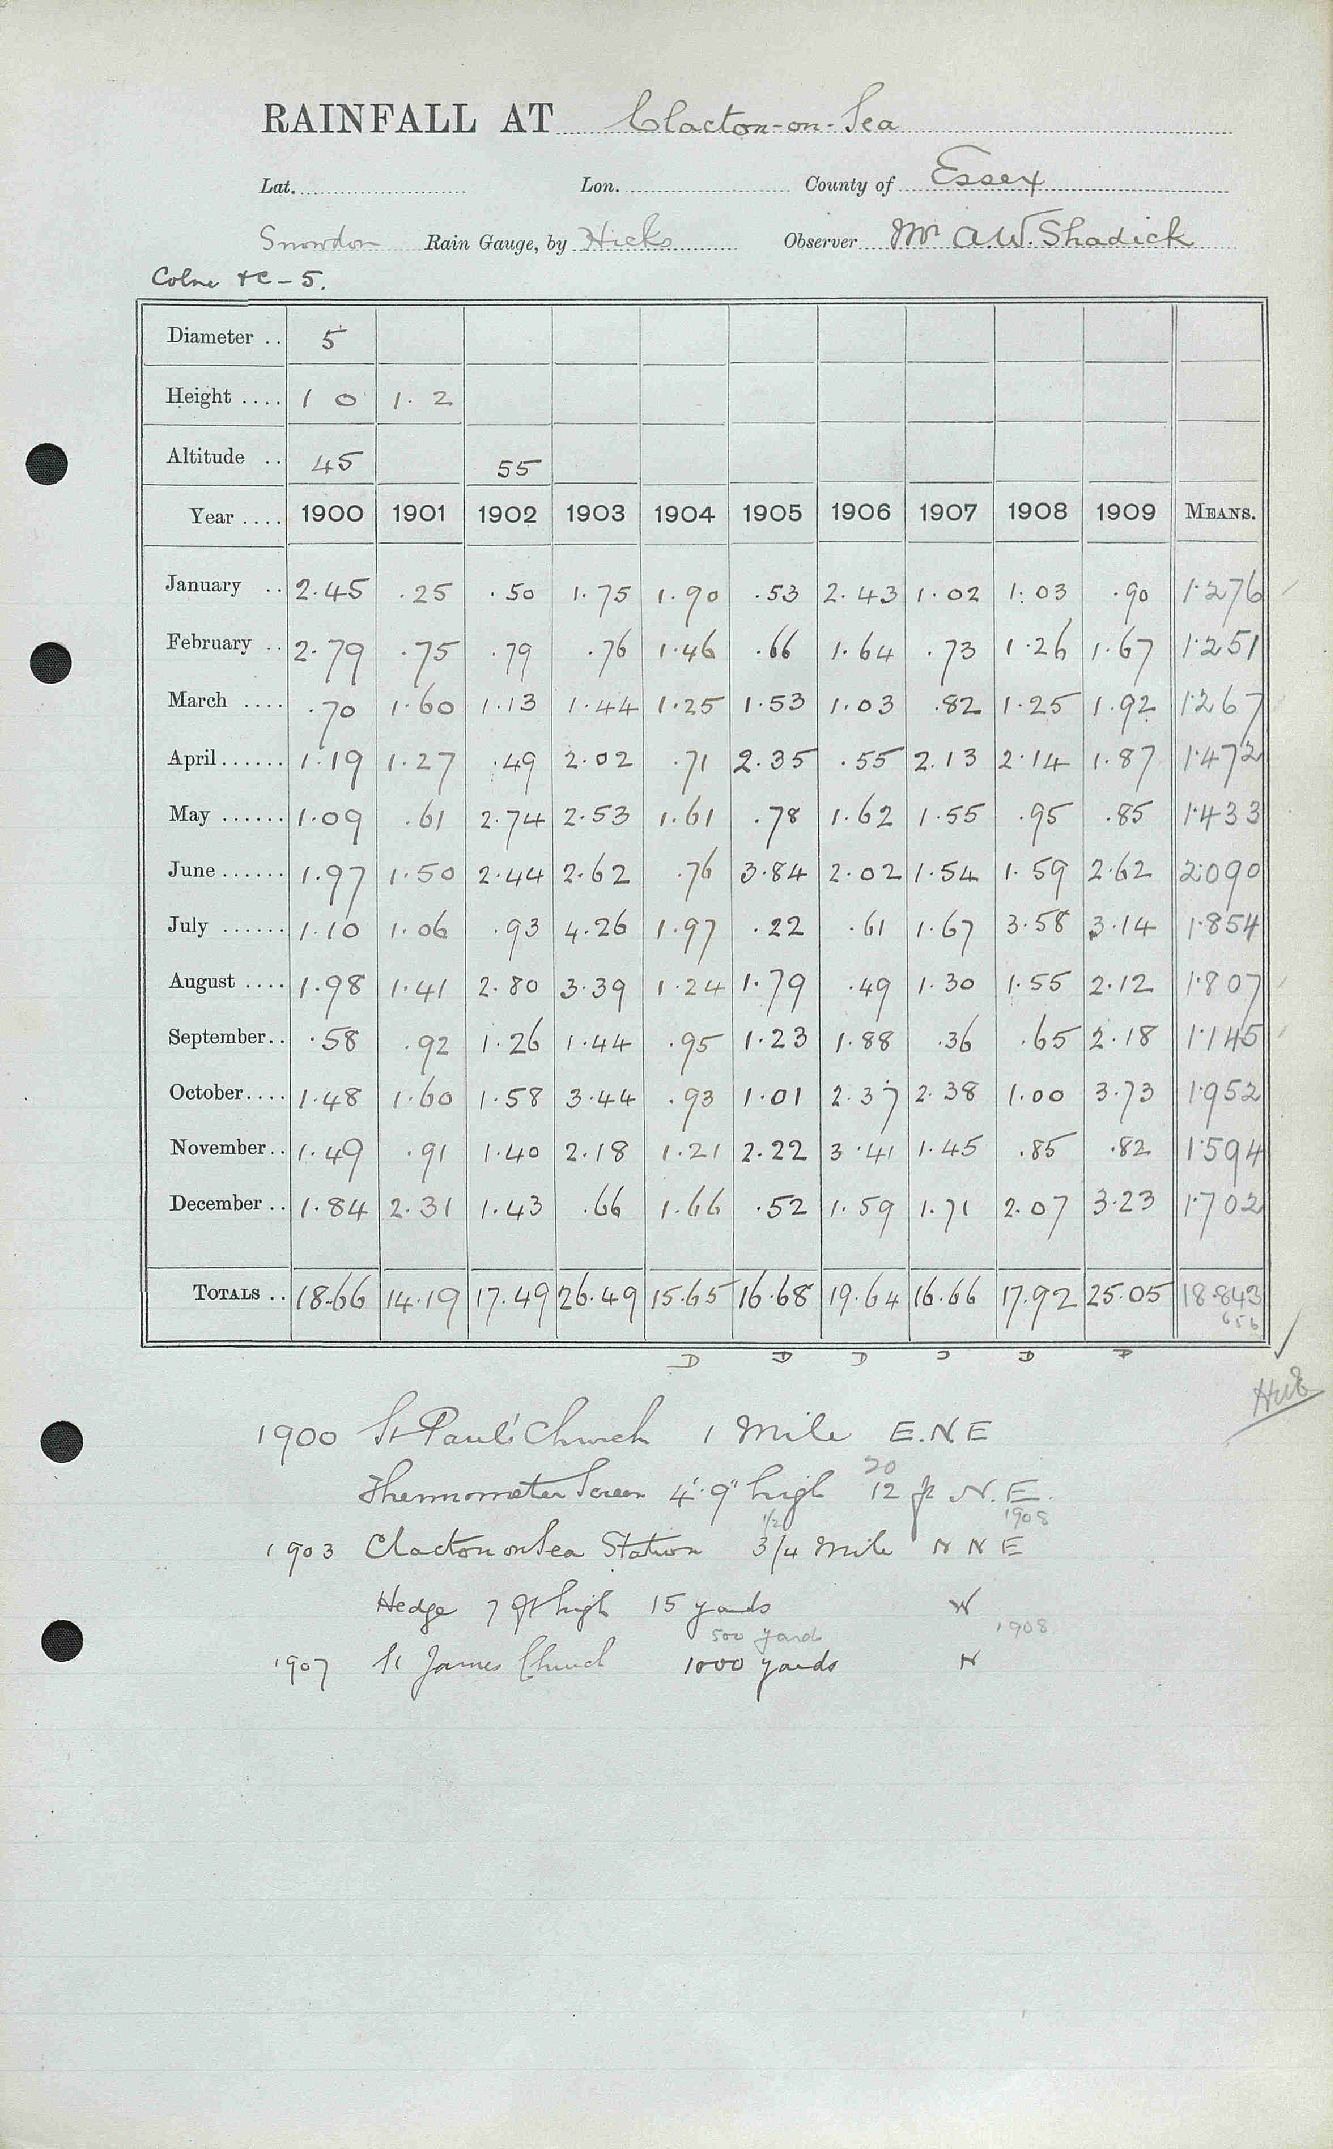 RAINFALL AT Clacton-on-Sea
Lat. Lon. County of Essex
Snowdon Rain Gauge, by Hicks Observer Mr A.W. Shadick
Colne &c - 5.
Diameter .. 5
Height .... 1 0 1. 2
Altitude .. 45 55
Year .... 1900 1901 1902 1903 1904 1905 1906 1907 1908 1909 MEANS.
January .. 2.45 .25 .50 1.75 1.90 .53 2.43 1.02 1.03 .90 1.276
February .. 2.79 .75 .79 .76 1.46 .66 1.64 .73 1.26 1.67 1.251
March .... .70 1.60 1.13 1.44 1.25 1.53 1.03 .82 1.25 1.92 1.267
April ...... 1.19 1.27 .49 2.02 .71 2.35 .55 2.13 2.14 1.87 1.472
May ...... 1.09 .61 2.74 2.53 1.61 .78 1.62 1.55 .95 .85 1.433
June ...... 1.97 1.50 2.44 2.62 .76 3.84 2.02 1.54 1.59 2.62 2.090
July ...... 1.10 1.06 .93 4.26 1.97 .22 .61 1.67 3.58 3.14 1.854
August .... 1.98 1.41 2.80 3.39 1.24 1.79 .49 1.30 1.55 2.12 1.807
September .. .58 .92 1.26 1.44 .95 1.23 1.88 .36 .65 2.18 1.145
October .... 1.48 1.60 1.58 3.44 .93 1.01 2.37 2.38 1.00 3.73 1.952
November .. 1.49 .91 1.40 2.18 1.21 2.22 3.41 1.45 .85 .82 1.594
December .. 1.84 2.31 1.43 .66 1.66 .52 1.59 1.71 2.07 3.23 1.702
TOTALS .. 18.66 14.19 17.49 26.49 15.65 16.68 19.64 16.66 17.92 25.05 18.843
656
D D D D D D
1900 St Paul's Church 1 Mile E.N E
20
Thermometer Screen 4'.9" high 12 ft N.E.
1/2 1908
1903 Clacton on Sea Station 3/4 Mile N N E
Hedge 7 ft high 15 yards W
500 yards 1908
1907 St James Church 1000 yards N